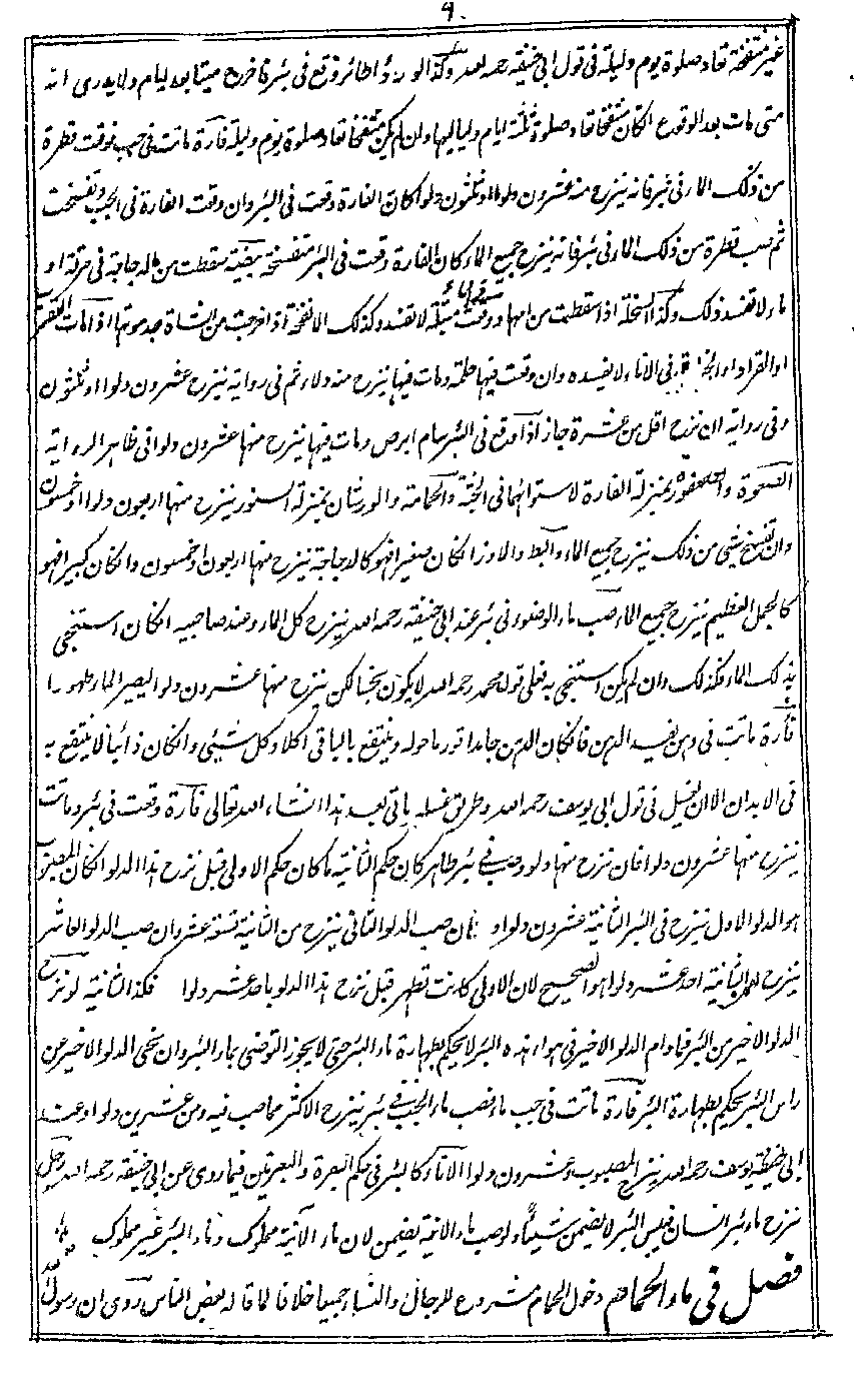 ٩
غير متفخة تعاد صلوة يوم وليلة فى قول ابى حنيفة رحمه الله وكذا لو رؤ اطائر وقع فى بئر فاخرج ميتا بعد ايام ولا يدرى انه
متى مات بعد الوقوع انكان منتفخا تعاد صلوة ثلثة ايام ولياليها وان لم يكن منتفخا تعاد صلوة يوم وليلة فارة ماتت فى حب فوقعت قطرة
من ذلك الماء فى بئر فانه ينزح منه عشرون دلوا او ثلثون دلوا كان الفارة وقعت فى البئر وان وقعت الفارة فى الحب وتفسخت
ثم صب قطرة من ذلك الماء فى بئر فانه ينزح جميع الماء كان الفارة وقعت فى البئر متفسخة بيضة سقطت من الدجاجة فى مرقة او
ماء لا تفسد ذلك وكذا السخلة اذا سقطت من امها ووقعت فى الماء مبتلة لا تفسد وكذلك الانفحة اذا خرجت من الشاة بعد موتها اذا مات
او القراد او فى الاناء لا يفسده وان وقعت فيها حلمة ومات فيها ينزح منه دلاء ثم فى رواية ينزح عشرون دلوا او ثلثون
وفى رواية ان نزح اقل من عشرة جاز اذا وقع فى البئر سام ابرص ومات فيها ينزح منها عشرون دلوا فى ظاهر الرواية
الصعوة والعصفور بمنزلة الفارة لاستوائهما فى الجثة والحمامة والورشان بمنزلة السنور ينزح منها اربعون دلوا او خمسون
وان تفسخ شئ من ذلك ينزح جميع الماء والبط والاوز انكان صغيرا فهو كالدجاجة ينزح منها اربعون او خمسون وانكان كبيرا فهو
كالجمل العظيم ينزح جميع الماء صب ماء الوضوء فى بئر عند ابى حنيفة رحمه الله ينزح كل الماء وعند صاحبيه انكان استنجى
بذلك الماء فكذلك وان لم يكن استنجى به فعلى قول محمد رحمه الله لا يكون نجسا لكن ينزح منها عشرون دلوا ليصير الماء طهورا
فأرة ماتت فى دهن يفسد الدهن فانكان الدهن جامدا قور ما حوله وينتفع بالباقى اكلا وكل شيئى وانكان ذائبا لا ينتفع به
فى الابدان الا ان يغسل فى قول ابى يوسف رحمه الله وطريق غسله ياتى بعد هذا انشاء الله تعالى فارة وقعت فى بئر وماتت
ينزح منها عشرون دلوا فان نزح منها دلو وصب فى بئر طاهر كان حكم الثانية ما كان حكم الاولى قبل نزح هذا الدلو انكان المصبوب
هو الدلو الاول ينزح فى البئر الثانية عشرون دلوا وان صب الدلو الثانى ينزح من الثانية تسعة عشر وان صب الدلو العاشر
ينزح من الثانية احد عشر دلوا هو الصحيح لان الاولى كانت تطهر قبل نزح هذا الدلو باحد عشر دلوا فكذا الثانية لو نزح
الدلو الاخير من البئر فما دام الدلو الاخير فى هواء هذه البئر لا يحكم بطهارة ماء البئر حتى لا يجوز التوضى بماء البئر وان نحى الدلو الاخير عن
راس البئر يحكم بطهارة البئر فارة ماتت فى حب ماء فصب ماء الحب فى بئر ينزح الاكثر مما صب فيه ومن عشرين دلوا وعند
ابى يوسف رحمه الله ينزح المصبوب وعشرون دلوا الاناء كالبئر فى حكم البعرة والبعرتين فيما روى عن ابى حنيفة رحمه الله رجل
نزح ماء بئر انسان فيبس البئر لا يضمن شيئا ولو صب ماء الانية يضمن لان ماء الآنية مملوك وماء البئر غير مملوك
فصل فى ماء الحمام دخول الحمام مشروع للرجال والنساء جميعا خلافا لما قاله بعض الناس روى ان رسول الله